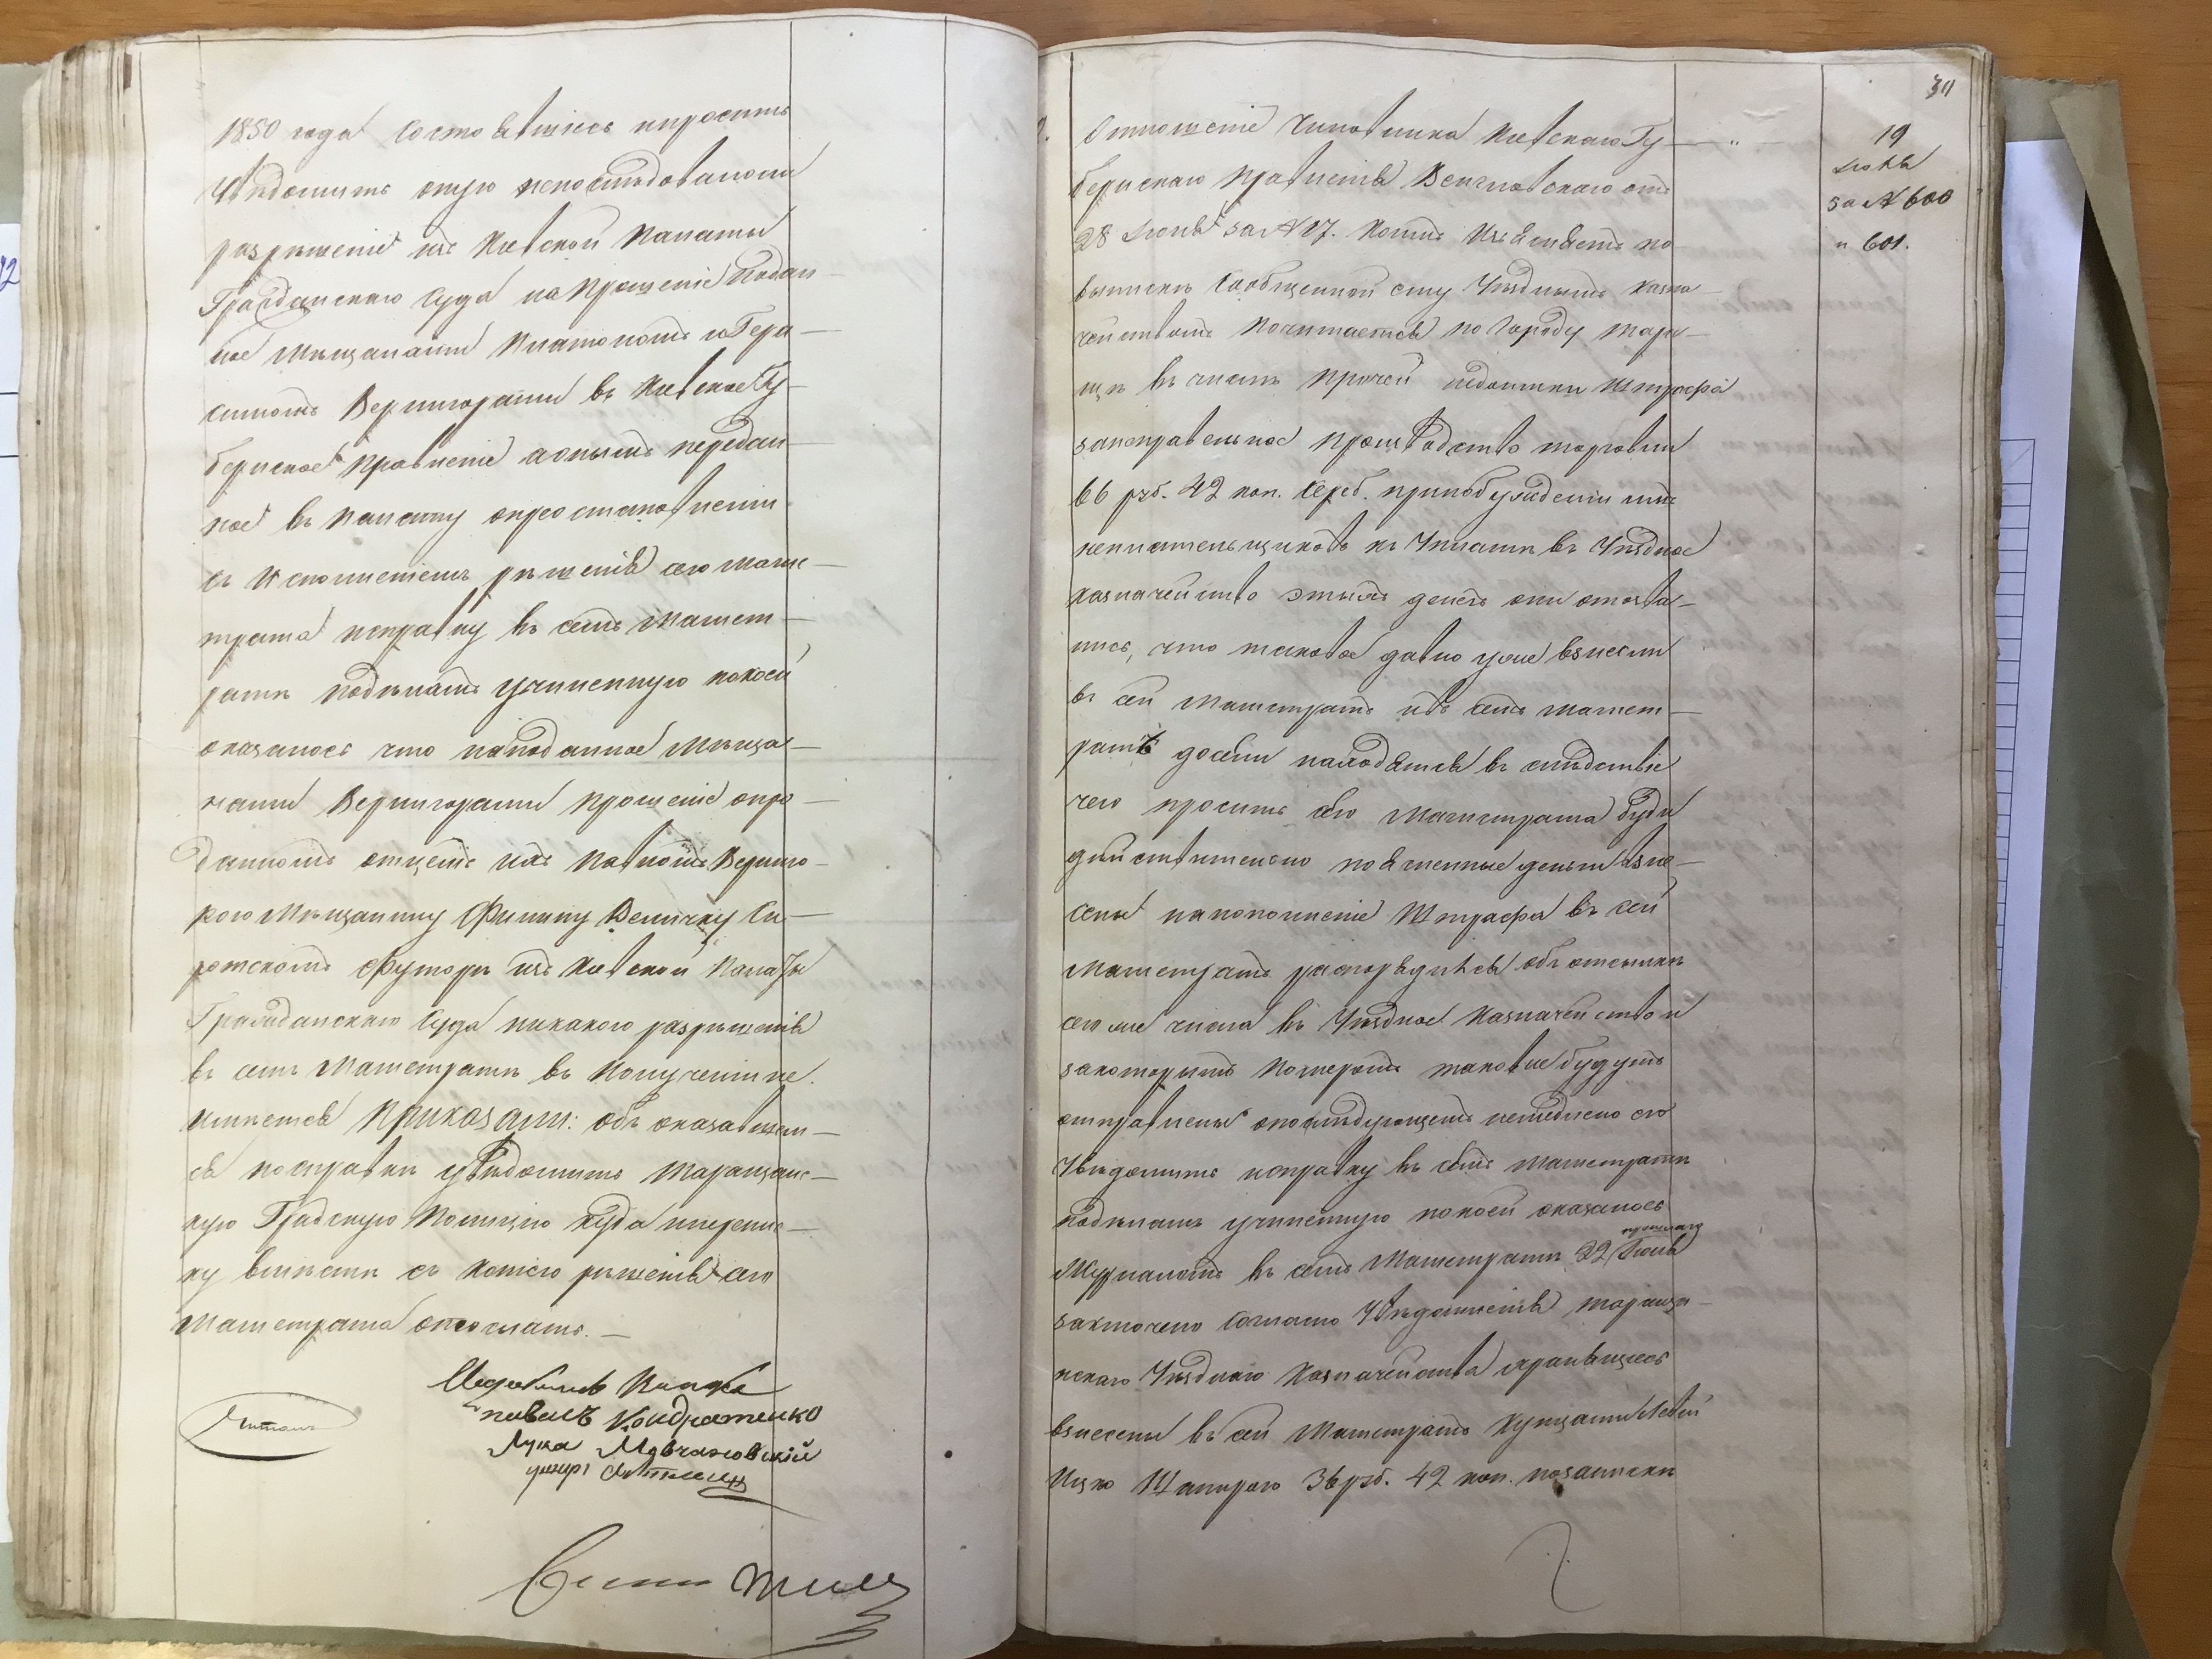 1850 года состоявшееся и проситъ
Увѣдомить оную непослѣдовалоли
разрѣшеніе изъ Кіевской Палаты
Гражданскаго Суда на прошеніе подан-
ное Мѣщанами Платономъ и Гера-
симомъ Вернигорами въ Кіевское Гу-
бернское Правленіе а онымъ передан-
ное въ Палату о пріостановленіи
съ исполненіемъ рѣшенія сего Маги-
страта исправку въ семъ Магист-
ратѣ подѣламъ учиненную по коей
оказалось что на поданное Мѣща-
нами Вернигорами прошеніе о про-
данномъ отцемъ ихъ Павломъ Верниго-
рою Мѣщанину Филипу Величку Си-
ротскомъ Футорѣ изъ Кіевской Палаты
Гражданскаго Суда никакого разрѣшенія
въ семъ Магистратѣ въ полученіи не
имѣется Приказали: объ оказавшем-
ся по справкѣ увѣдомить Таращанс-
кую Градскую Полицію куда и перепис-
ку вмѣстѣ съ копіею рѣшенія сего
Магистрата отослать.—
Павелъ Кондратенко
Лука
Читалъ
30
Отношеніе Чиновника Кіевскаго Гу-
бернскаго Правленія отъ
28 Іюня за № 27. коимъ изъясняетъ по
выпискѣ сообщенной ему Уѣзднымъ Казна-
чействомъ почитается по городу Тара-
щѣ въ числѣ прочей недоимки Штрафа
за неправельное производство торговли
66 руб. 42 коп. сереб. при побужденіи имъ
неплательщиковъ къ Уплатѣ въ Уѣздное
Казначейство этихъ денегъ они отозва-
лись, что таковое давно уже взнесли
въ сей Магистратъ и въ семъ Магист-
ратѣ досели находятся въ слѣдствіе
чего проситъ сего Магистрата буди
дѣйствительно поясненные деньги взне-
сены на пополненіе Штрафа въ сей
Магистратъ распорядится объ отсылкѣ
сего же числа въ Уѣздное Казначейство и
за которымъ номеромъ таковые будутъ
отправлены о послѣдующемъ немедлено его
Увѣдомить исправку въ семъ Магистратѣ
подѣламъ учиненную по коей оказалось
Журналомъ въ семъ Магистратѣ 22 прошлаго Іюня
заключено согласно Увѣдомленія Тараща-
нскаго Уѣзднаго Казначейства хранящіеся
взнесены въ сей Магистратъ Купцами
Ицко Шапирою 36 руб. 42 коп. по запискѣ
19
Іюля
за № 600
и 601.